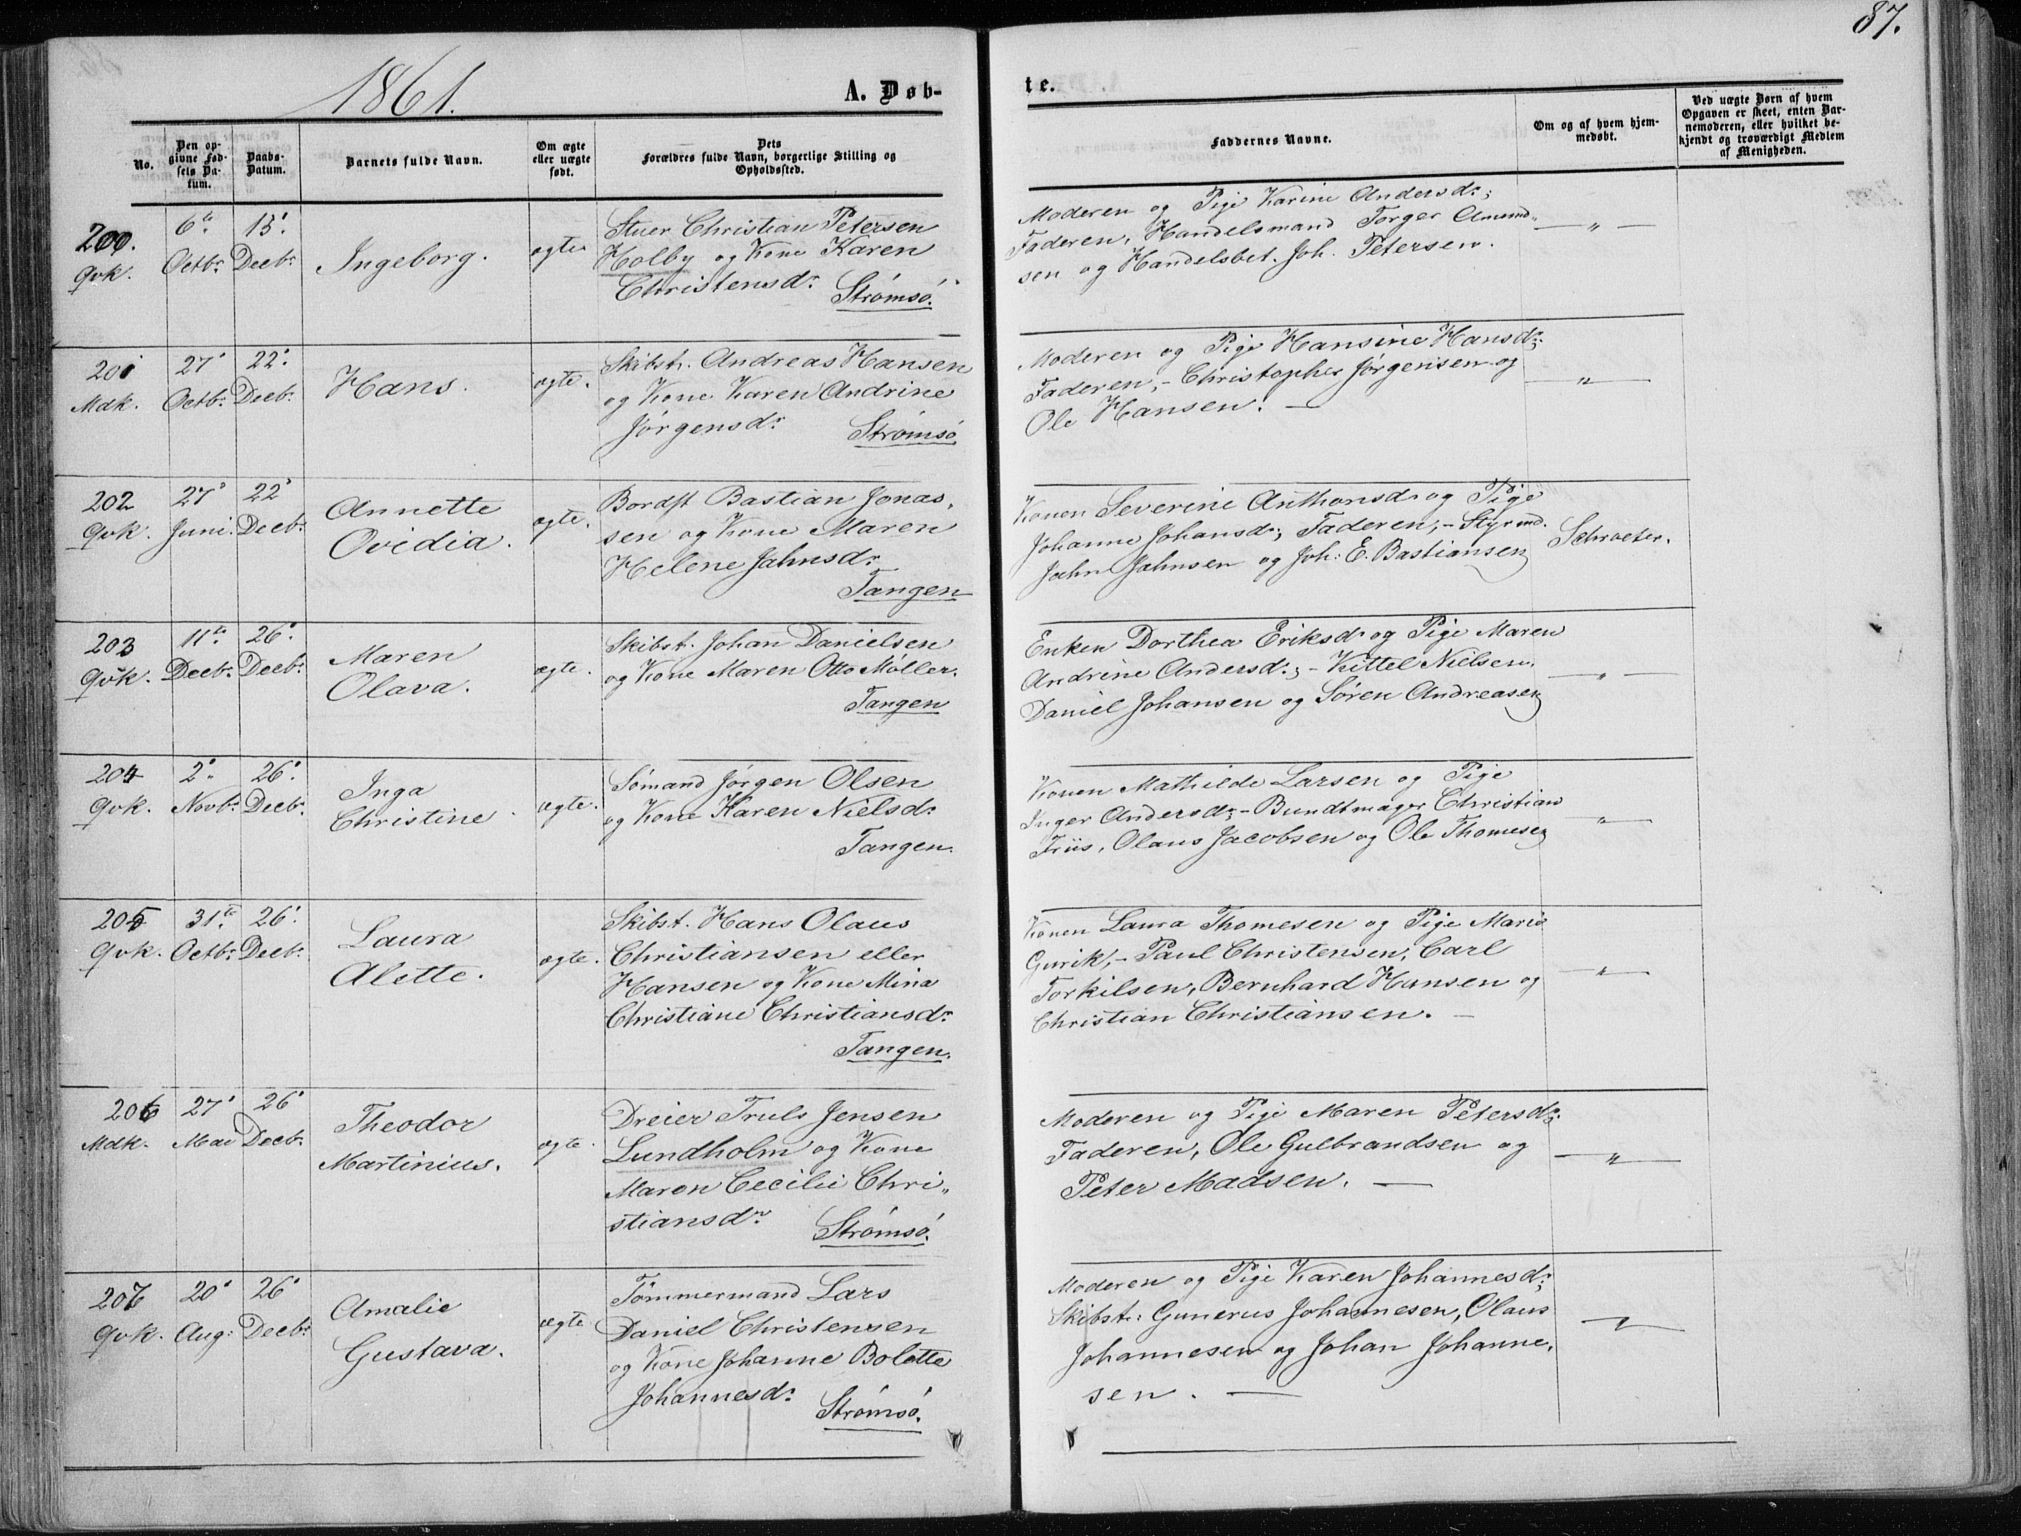 87.
1861. A. Døb- te.
No.
Den opgivne Fødsels Datum.
Daabs-Datum.
Barnets fulde Navn.
Om ægte eller uægte født.
Dets Forældres fulde Navn, borgerlige Stilling og Opholdssted.
Faddernes Navne.
Om og af hvem hjemmedøbt.
Ved uægte Børn af hvem Opgaven er skeet, enten Barnemoderen, eller hvilket bekjendt og troværdigt Medlem af Menigheden.
200. Qvk.
6te Octbr.
15' Decbr.
Ingeborg.
ægte
Stuer Christian Petersen
Holby og Kone Karen
Christensdr. Strømsö.
Moderen og Pige Karine Andersdr;
Faderen, Handelsmand Torger Amund-
sen og Handelsbet. Joh. Petersen.
— „ —
201 Mdk.
27' Octbr.
22' Decbr.
Hans.
ægte.
Skibst. Andreas Hansen
og Kone Karen Andrine
Jørgensdr. Strømsö
Moderen og Pige Hansine Hansdr;
Faderen, – Christopher Jørgensen og
Ole Hansen. —
— „ —
202 Qvk.
27' Juni.
22' Decbr.
Annette
Ovidia.
ægte.
Bordst Bastian Jonas-
sen og Kone Maren
Helene Jahnsdr.
Tangen
Konen Severine Anthonsdr og Pige
Johanne Johansdr; Faderen, – Styrmd.
Jahn Jahnsen og Joh: E. Bastiansen
Schroeter.
203 Qvk.
11te Decbr.
26' Decbr.
Maren
Olava.
ægte.
Skibst. Johan Danielsen
og Kone Maren Otto Møller.
Tangen
Enken Dorthea Eriksdr og Pige Maren
Andrine Andersdr; – Kittel Nielsen,
Daniel Johansen og Søren Andreasen
— „ —
204 Qvk.
2' Novbr.
26' Decbr.
Inga
Christine.
ægte.
Sömand Jørgen Olsen
og Kone Karen Nielsdr.
Tangen.
Konen Mathilde Larsen og Pige
Inger Andersdr – Bundtmager Christian
Friis, Olaus Jacobsen og Ole Thomesen
— „ —
205 Qvk.
31te Octbr.
26' Decbr.
Laura
Alette.
ægte.
Skibst. Hans Olaus
Christiansen eller
Hansen og Kone Mina
Christiane Christiansdr.
Tangen.
Konen Laura Thomesen og Pige Marie
Gurik, – Paul Christensen, Carl
Torkilsen, Bernhard Hansen og
Christian Christiansen. —
— „ —
206 Mdk.
27' Mai
26' Decbr.
Theodor
Martinius.
ægte.
Dreier Truls Jensen
Lundholm og Kone
Maren Cecilie Chri-
stiansdr. Strømsö.
Moderen og Pige Maren Petersdr;
Faderen, Ole Gulbrandsen og
Peter Madsen. —
— „ —
207 Qvk.
20' Aug:
26' Decbr.
Amalie
Gustava.
ægte
Tömmermand Lars
Daniel Christensen
og Kone Johanne Bolette
Johannesdr. Strømsö.
Moderen og Pige Karen Johannesdr;
Skibst: Gunerus Johannesen, Olaus
Johannesen og Johan Johanne-
sen. —
— „ —